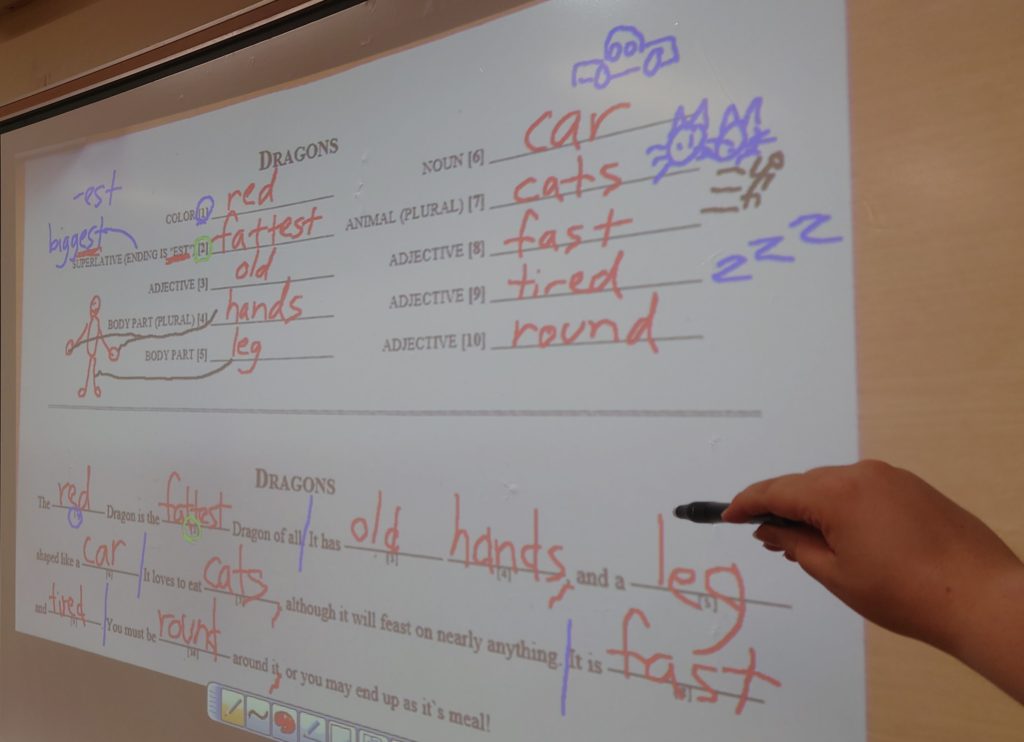 DRAGONS
-est
biggest
COLOR [1] red
SUPERLATIVE (ENDING IS "EST") [2] fattest
ADJECTIVE [3] old
BODY PART (PLURAL) [4] hands
BODY PART [5] leg
NOUN [6] car
ANIMAL (PLURAL) [7] cats
ADJECTIVE [8] fast
ADJECTIVE [9] tired
z z z
ADJECTIVE [10] round
DRAGONS
The red Dragon is the fattest Dragon of all. It has old hands, and a leg
[3] [4] [5]
shaped like a car It loves to eat cats, although it will feast on nearly anything. It is fast
[6] [7] [8]
and tired You must be round around it, or you may end up as it`s meal!
[9] [10]